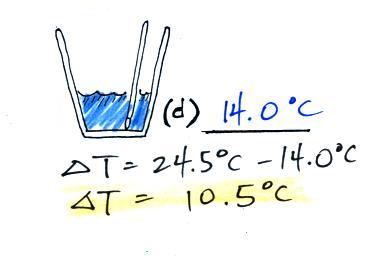 (d) 14.0°C
ΔT = 24.5°C - 14.0°C
ΔT = 10.5°C